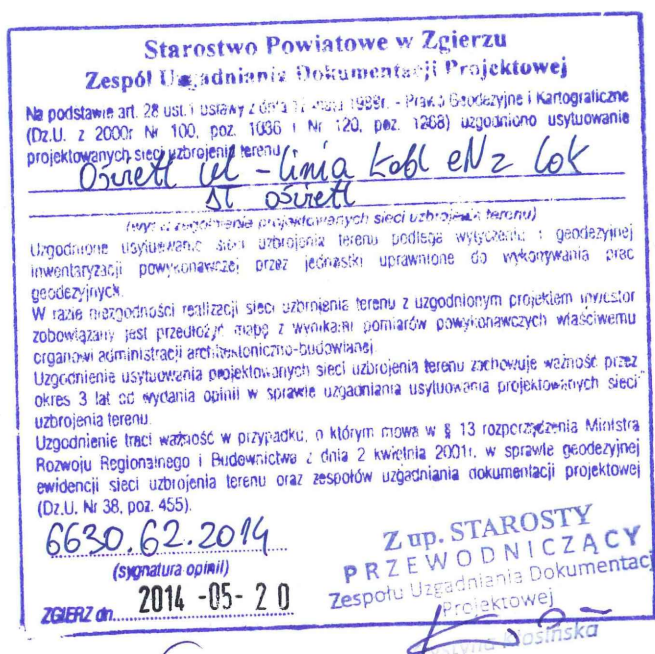 Starostwo Powiatowe w Zgierzu
Zespół Uzgadniania Dokumentacji Projektowej
Na podstawie art. 28 ust. 1 ustawy z dnia 17 maja 1989r. - Prawo Geodezyjne i Kartograficzne
(Dz.U. z 2000r Nr 100, poz. 1086 i Nr 120, poz. 1268) uzgodniono usytuowanie
projektowanych sieci uzbrojenia terenu
Oświetl - linia kabl eN z
oświetl
(wyszczególnienie projektowanych sieci uzbrojenia terenu)
Uzgodnione usytuowanie sieci uzbrojenia terenu podlega wytyczeniu i geodezyjnej
inwentaryzacji powykonawczej przez jednostki uprawnione do wykonywania prac
geodezyjnych.
W razie niezgodności realizacji sieci uzbrojenia terenu z uzgodnionym projektem inwestor
zobowiązany jest przedłożyć mapę z wynikami pomiarów powykonawczych właściwemu
organowi administracji architektoniczno-budowlanej.
Uzgodnienie usytuowania projektowanych sieci uzbrojenia terenu zachowuje ważność przez
okres 3 lat od wydania opinii w sprawie uzgadniania usytuowania projektowanych sieci
uzbrojenia terenu.
Uzgodnienie traci ważność w przypadku, o którym mowa w § 13 rozporządzenia Ministra
Rozwoju Regionalnego i Budownictwa z dnia 2 kwietnia 2001r. w sprawie geodezyjnej
ewidencji sieci uzbrojenia terenu oraz zespołów uzgadniania dokumentacji projektowej
(Dz.U. Nr 38, poz. 455).
6630.62.2014
(sygnatura opinii)
ZGIERZ dn. 2014 -05- 20
Z up. STAROSTY
PRZEWODNICZĄCY
Zespołu Uzgadniania Dokumentacj
Projektowej
Kłosińska